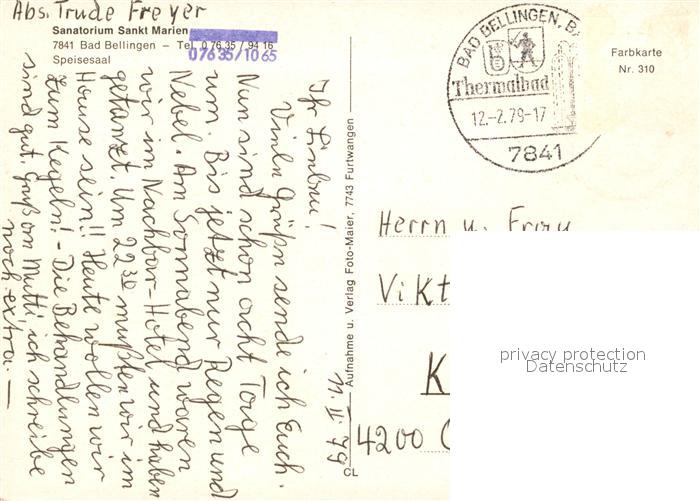 Abs. Trude Freyer
Sanatorium Sankt Marien
7841 Bad Bellingen – Tel. 0 76 35 / 94 16
07635/1065
Speisesaal
Ihr Lieben!
Viele Grüße sende ich Euch.
Nun sind schon acht Tage
um. Bis jetzt nur Regen und
Nebel. Am Sonnabend waren
wir im Nachbar-Hotel und haben
getanzt. Um 22³⁰ mußten wir im
Hause sein!! Heute wollen wir
zum Kegeln! - Die Behandlungen
sind gut. Gruß an Mutti, ich schreibe
noch extra. —
11. II. 79
Aufnahme u. Verlag Foto-Maier, 7743 Furtwangen
CL
BAD BELLINGEN, B
Thermalbad
12.-2.79-17
7841
Farbkarte
Nr. 310
Herrn u. Frau
Vikt
K
4200
privacy protection
Datenschutz